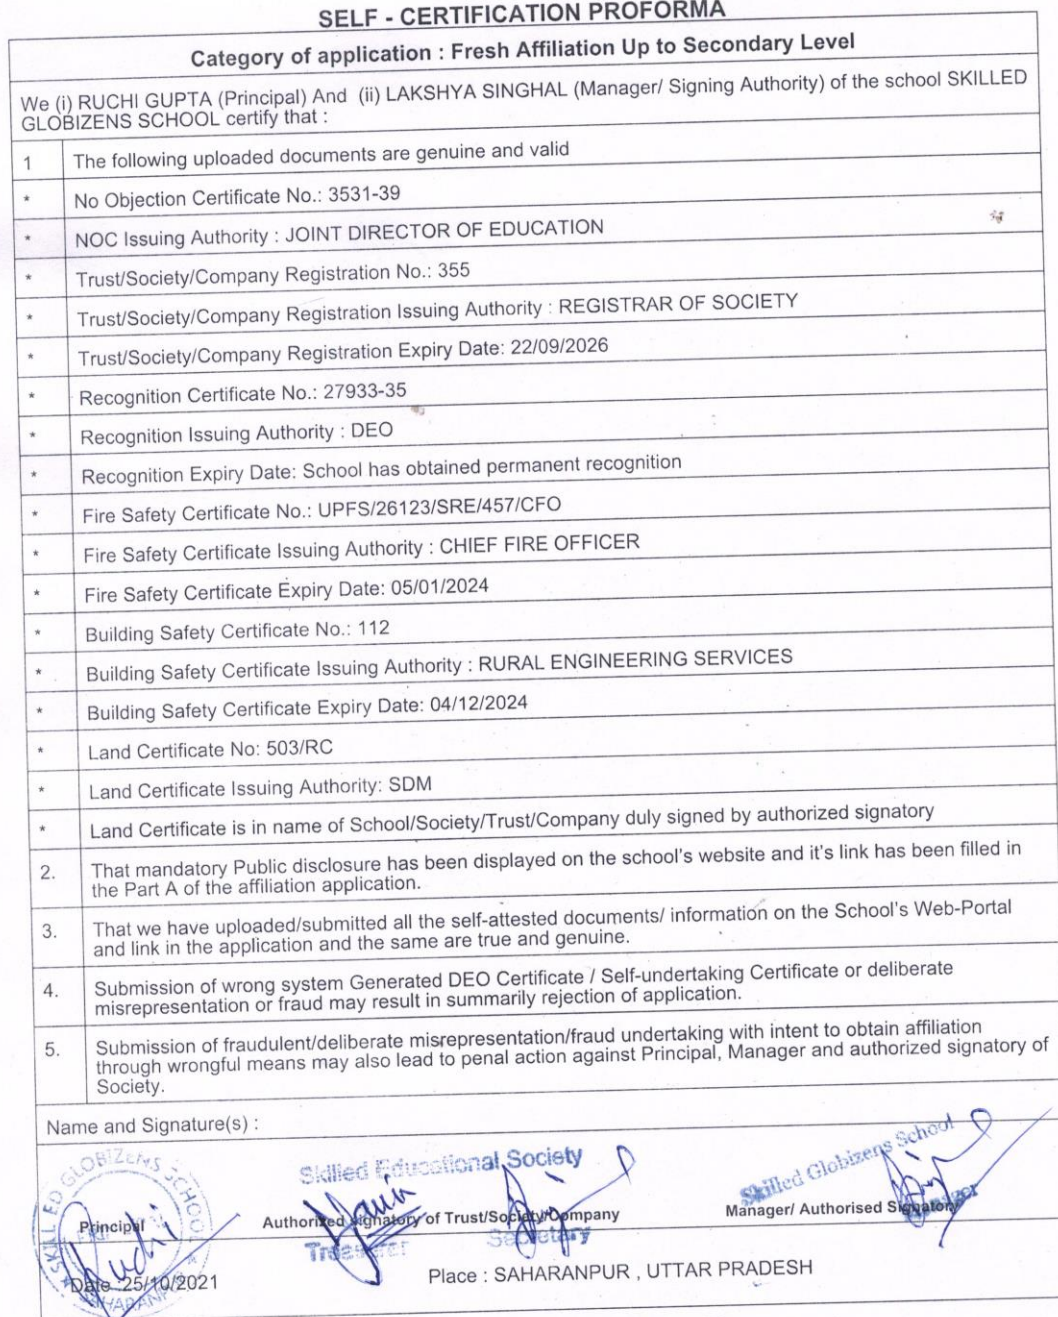 SELF - CERTIFICATION PROFORMA
Category of application : Fresh Affiliation Up to Secondary Level
We (i) RUCHI GUPTA (Principal) And (ii) LAKSHYA SINGHAL (Manager/ Signing Authority) of the school SKILLED
GLOBIZENS SCHOOL certify that :
1 The following uploaded documents are genuine and valid
* No Objection Certificate No.: 3531-39
* NOC Issuing Authority : JOINT DIRECTOR OF EDUCATION
* Trust/Society/Company Registration No.: 355
* Trust/Society/Company Registration Issuing Authority : REGISTRAR OF SOCIETY
* Trust/Society/Company Registration Expiry Date: 22/09/2026
* Recognition Certificate No.: 27933-35
* Recognition Issuing Authority : DEO
* Recognition Expiry Date: School has obtained permanent recognition
* Fire Safety Certificate No.: UPFS/26123/SRE/457/CFO
* Fire Safety Certificate Issuing Authority : CHIEF FIRE OFFICER
* Fire Safety Certificate Expiry Date: 05/01/2024
* Building Safety Certificate No.: 112
* Building Safety Certificate Issuing Authority : RURAL ENGINEERING SERVICES
* Building Safety Certificate Expiry Date: 04/12/2024
* Land Certificate No: 503/RC
* Land Certificate Issuing Authority: SDM
* Land Certificate is in name of School/Society/Trust/Company duly signed by authorized signatory
2. That mandatory Public disclosure has been displayed on the school's website and it's link has been filled in
the Part A of the affiliation application.
3. That we have uploaded/submitted all the self-attested documents/ information on the School's Web-Portal
and link in the application and the same are true and genuine.
4. Submission of wrong system Generated DEO Certificate / Self-undertaking Certificate or deliberate
misrepresentation or fraud may result in summarily rejection of application.
5. Submission of fraudulent/deliberate misrepresentation/fraud undertaking with intent to obtain affiliation
through wrongful means may also lead to penal action against Principal, Manager and authorized signatory of
Society.
Name and Signature(s) :
SKILLED GLOBIZENS SCHOOL
Skilled Educational Society
Skilled Globizens School
Principal Authorized Signatory of Trust/Society/Company Manager/ Authorised Signatory
Ruchi
Treasurer Secretary Manager
Date :25/10/2021 Place : SAHARANPUR , UTTAR PRADESH
SAHARANPUR